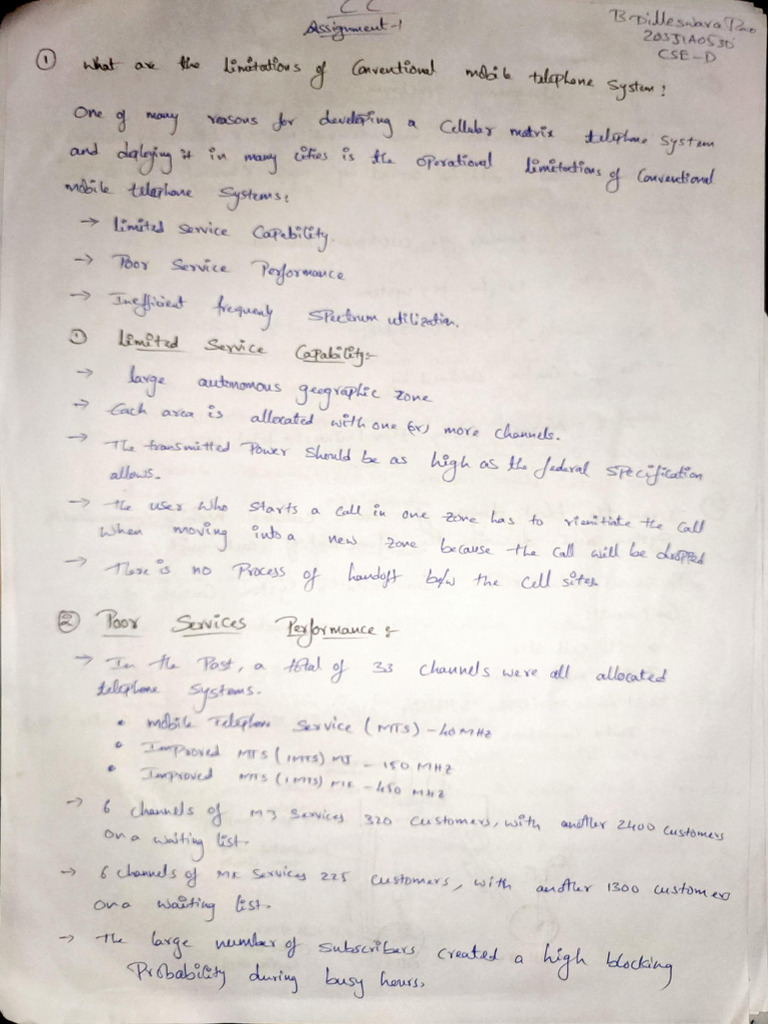 CC
Assignment-1
B Dilleswara Rao
203J1A0530
CSE-D
① What are the limitations of Conventional mobile telephone system:
One of many reasons for developing a Cellular matrix telephone system
and deploying it in many cities is the operational limitations of Conventional
mobile telephone systems:
→ limited service Capability.
→ Poor Service Performance
→ Inefficient frequency spectrum utilization.
① Limited Service Capability:-
→ large autonomous geographic zone
→ Each area is allocated with one (or) more channels.
→ The transmitted Power should be as high as the federal specification
allows.
→ the user who starts a call in one zone has to rienitiate the call
when moving into a new zone because the call will be dropped
→ There is no Process of handoff b/w the cell sites
② Poor Services Performance:-
→ In the Past, a total of 33 channels were all allocated
telephone systems.
• mobile Telephone Service (MTS) - 40 MHz
• Improved MTS (IMTS) MJ - 150 MHz
• Improved MTS (IMTS) MK - 450 MHz
→ 6 channels of MJ services 320 customers, with another 2400 customers
on a waiting list.
→ 6 channels of MK services 225 customers, with another 1300 customers
on a waiting list.
→ The large number of subscribers created a high blocking
Probability during busy hours.